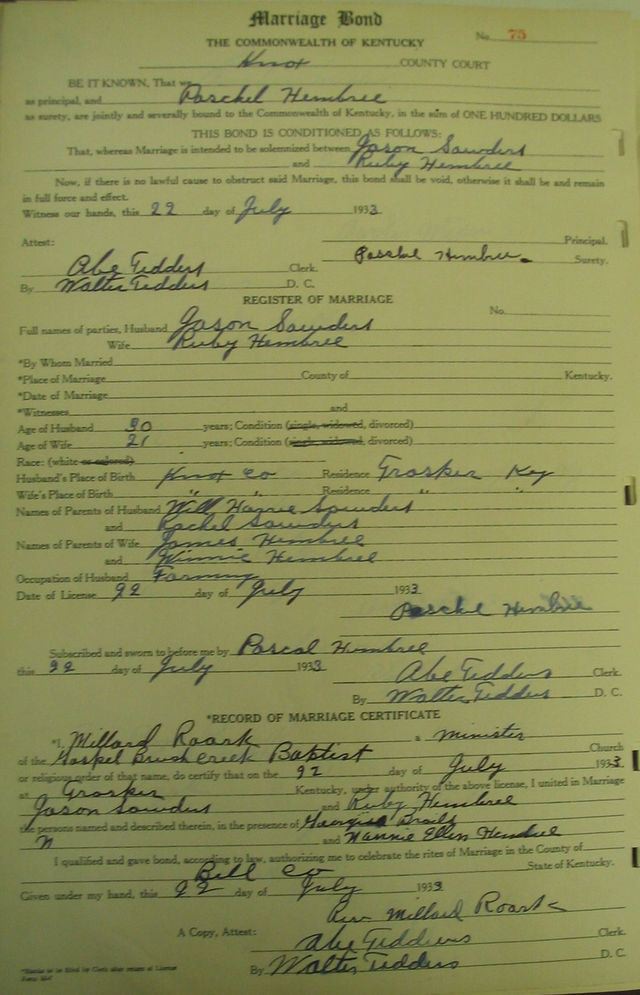 Marriage Bond
No. 75
THE COMMONWEALTH OF KENTUCKY
Knox COUNTY COURT
BE IT KNOWN, That we
as principal, and Paschel Hembree
as surety, are jointly and severally bound to the Commonwealth of Kentucky, in the sum of ONE HUNDRED DOLLARS
THIS BOND IS CONDITIONED AS FOLLOWS:
That, whereas Marriage is intended to be solemnized between Jason Saunders
and Ruby Hembree
Now, if there is no lawful cause to obstruct said Marriage, this bond shall be void, otherwise it shall be and remain
in full force and effect.
Witness our hands, this 22 day of July 1933
Principal.
Attest: Paschel Hembree. Surety.
Abe Tedders Clerk.
By Walter Tedders D. C.
REGISTER OF MARRIAGE
No.
Full names of parties, Husband Jason Saunders
Wife Ruby Hembree
*By Whom Married
*Place of Marriage County of Kentucky.
*Date of Marriage
*Witnesses and
Age of Husband 30 years; Condition (single, widowed, divorced)
Age of Wife 21 years; Condition (single, widowed, divorced)
Race: (white or colored)
Husband's Place of Birth Knox Co Residence Trosper Key
Wife's Place of Birth " " Residence " "
Names of Parents of Husband Will Saunders
and Rachel Saunders
Names of Parents of Wife James Hembree
and Winnie Hembree
Occupation of Husband Farming
Date of License 22 day of July 1933
Paschel Hembree
Subscribed and sworn to before me by Pascal Hembree
this 22 day of July 1933
Abe Tedders Clerk.
By Walter Tedders D. C.
*RECORD OF MARRIAGE CERTIFICATE
*I, Millard Roark a minister
of the Gospel Brush creek Baptist Church
or religious order of that name, do certify that on the 22 day of July 1933
at Trosper Kentucky, under authority of the above license, I united in Marriage
Jason Saunders and Ruby Hembree
the persons named and described therein, in the presence of
and Nannie Ellen Hembree
I qualified and gave bond, according to law, authorizing me to celebrate the rites of Marriage in the County of
Bell Co State of Kentucky.
Given under my hand, this 22 day of July 1933
Rev Millard Roark
A Copy, Attest: Abe Tedders Clerk.
By Walter Tedders D. C.